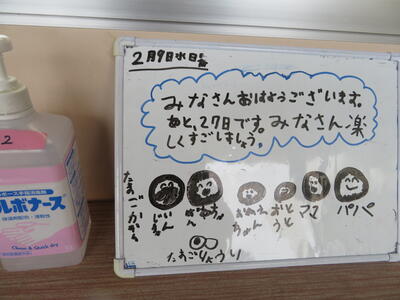 2月9日水日
みなさんおはようございます。
あと、27日です。みなさん楽
しくすごしましょう。
たまごかぞく
いんじぃ
ばぁちゃん
おねえちゃん
おとうと
ママ
パパ
たまごりょうり
2
ルボナース
Clean & Quick dry